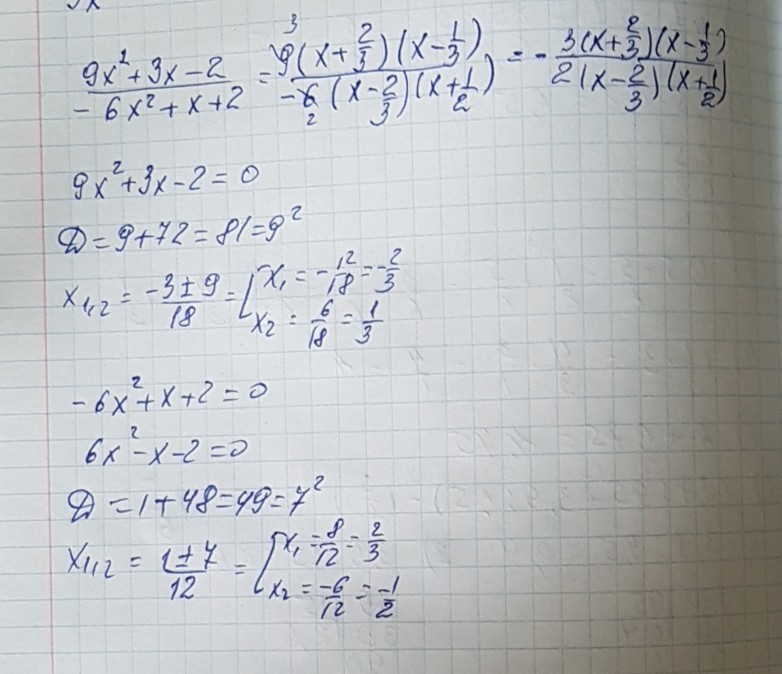 (9x²+3x-2)/(-6x²+x+2) = 3 9(x+2/3)(x-1/3)/(-6 2 (x-2/3)(x+1/2)) = - 3(x+2/3)(x-1/3)/(2(x-2/3)(x+1/2))
9x²+3x-2=0
D=9+72=81=9²
x₁,₂ = (-3±9)/18 = [x₁ = -12/18 = -2/3
x₂ = 6/18 = 1/3
-6x²+x+2=0
6x²-x-2=0
D=1+48=49=7²
x₁,₂ = (1±7)/12 = [x₁ = 8/12 = 2/3
x₂ = -6/12 = -1/2